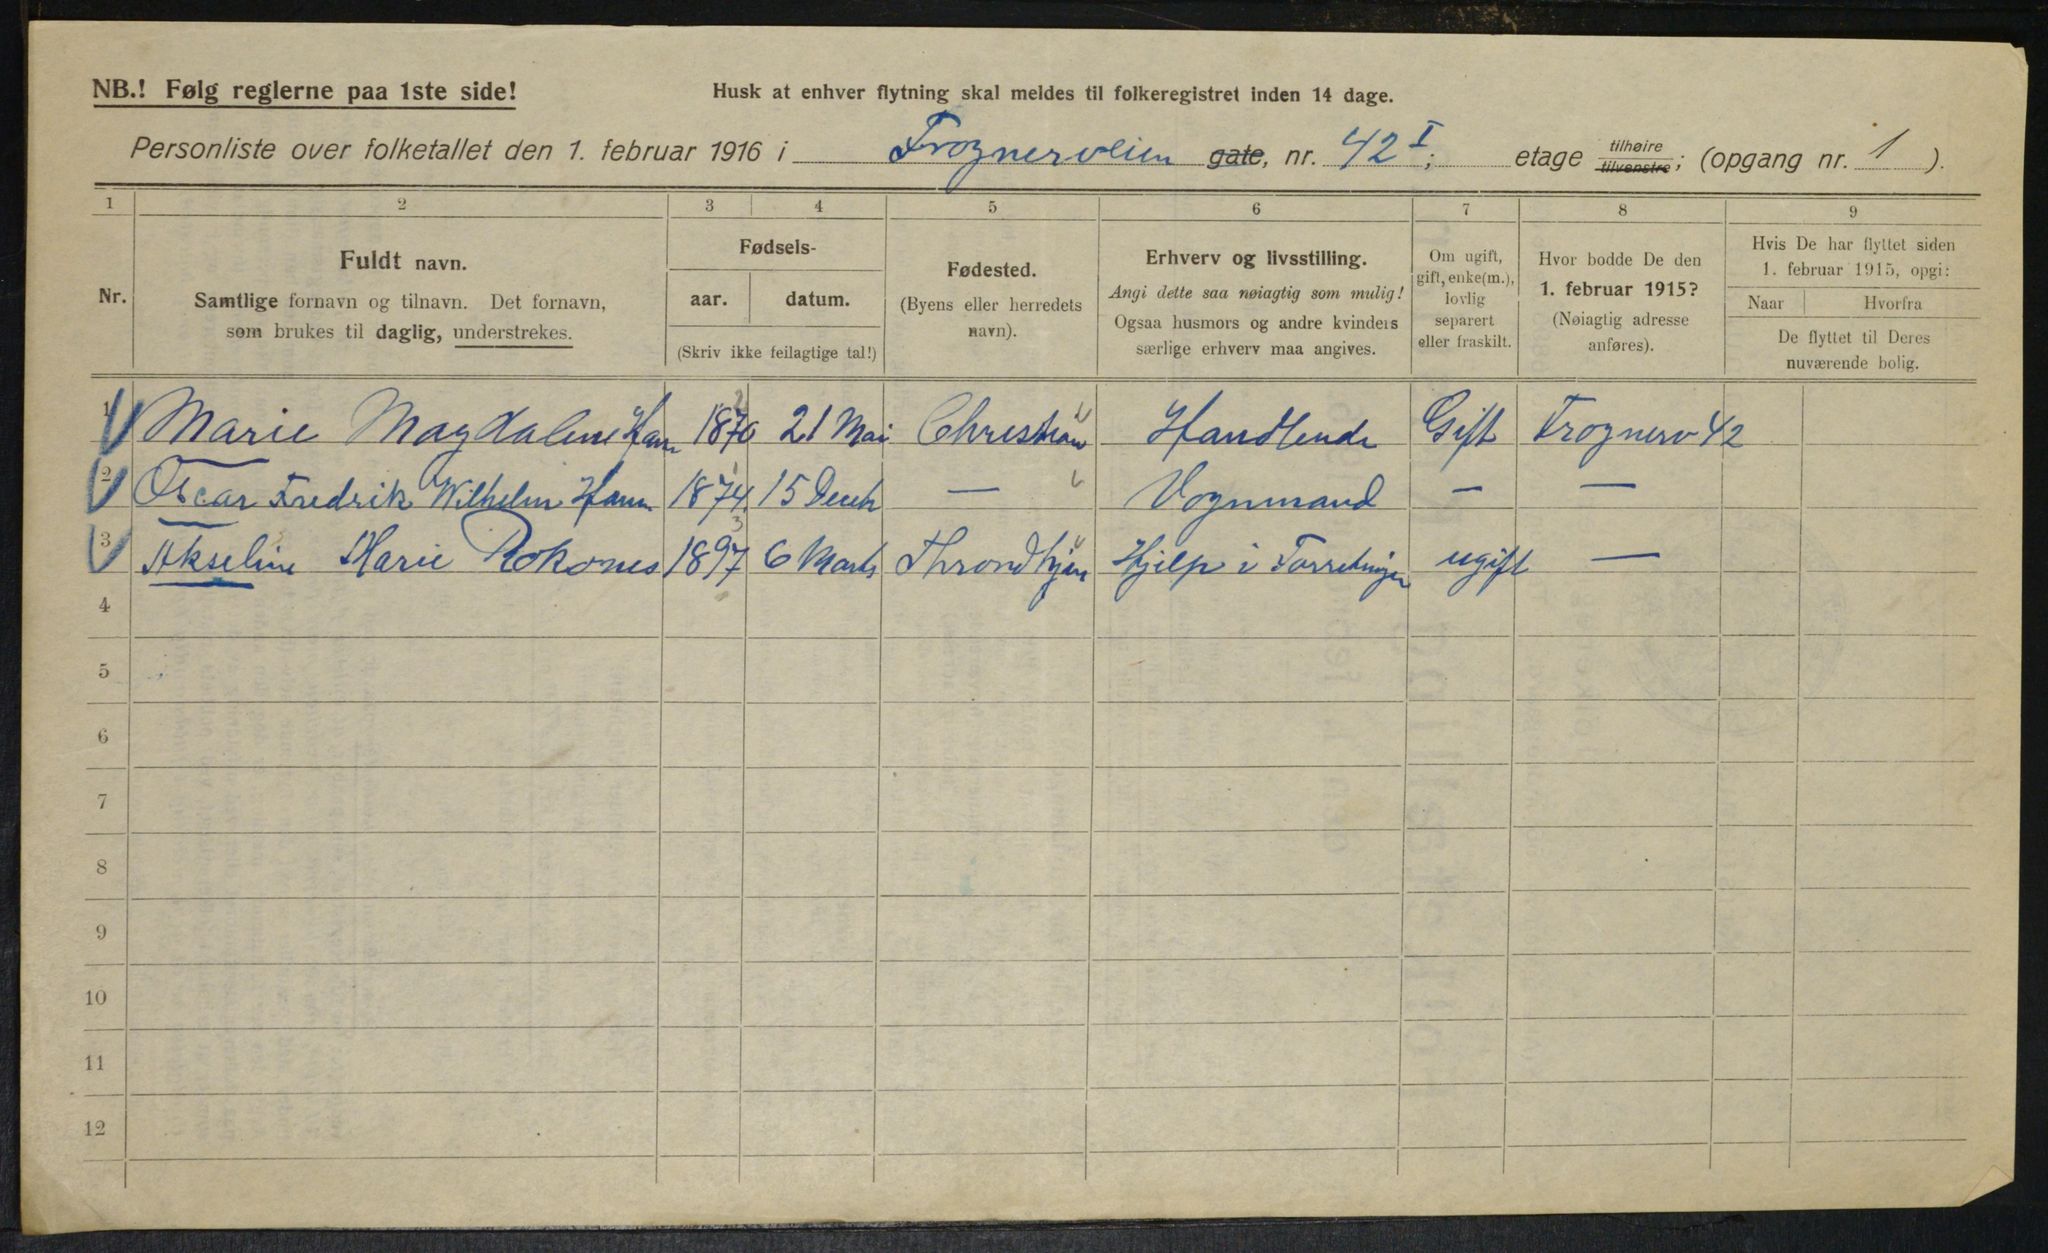 NB.! Følg reglerne paa 1ste side!
Husk at enhver flytning skal meldes til folkeregistret inden 14 dage.
Personliste over folketallet den 1. februar 1916 i Frognerveien gate, nr. 42 I; etage tilhøire tilvenstre; (opgang nr. 1).
1 2 3 4 5 6 7 8 9
Nr.
Fuldt navn.
Samtlige fornavn og tilnavn. Det fornavn,
som brukes til daglig, understrekes.
Fødsels-
aar. datum.
(Skriv ikke feilagtige tal!)
Fødested.
(Byens eller herredets
navn).
Erhverv og livsstilling.
Angi dette saa nøiagtig som mulig!
Ogsaa husmors og andre kvinders
særlige erhverv maa angives.
Om ugift,
gift, enke(m.),
lovlig
separert
eller fraskilt.
Hvor bodde De den
1. februar 1915?
(Nøiagtig adresse
anføres).
Hvis De har flyttet siden
1. februar 1915, opgi:
Naar Hvorfra
De flyttet til Deres
nuværende bolig.
1 Marie Magdalene 1870 21 Mai Handlende Gift Frognerv 42
2 Oscar Fredrik Wilhelm 1874. 15 — Vognmand — —
3 Akseline Marie 1897 6 Marts Throndhjem Hjelp i ugift —
4
5
6
7
8
9
10
11
12